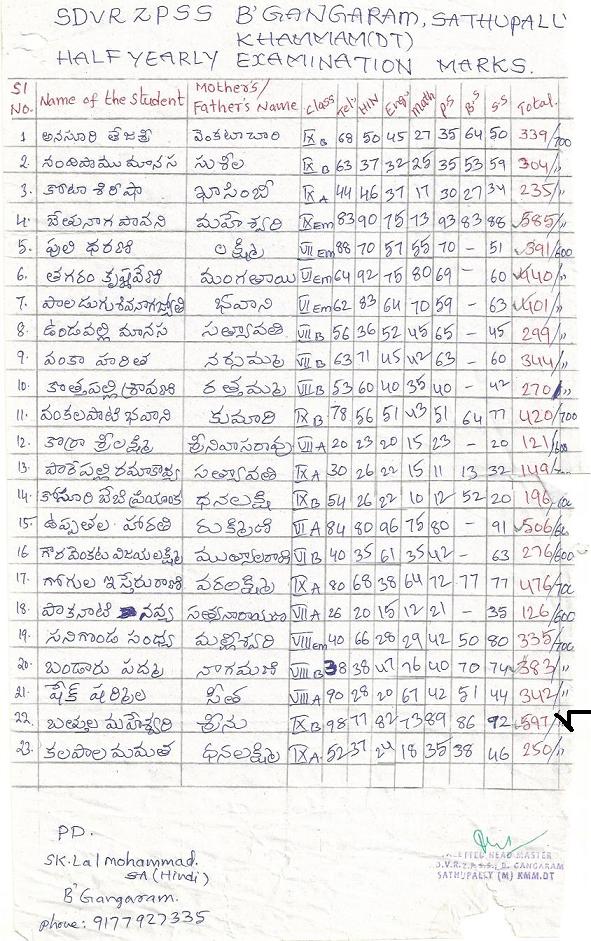 SDVR ZPSS B'GANGARAM, SATHUPALLI
KHAMMAM(DT)
HALF YEARLY EXAMINATION MARKS.
Sl No. Name of the student Mother's/Father's Name Class Tel' HIN Eng' Math PS B.S S.S Total.
1 అనసూరి తేజశ్రీ వెంకటాచారి IX B 68 50 45 27 35 64 50 339/700
2. నందిపాము మానస సుశీల IX B 63 37 32 25 35 53 59 304/"
3. కోటా శిరీషా ఖాసింబీ IX A 44 46 37 17 30 27 34 235/"
4. చేతునాగ పావని మహేశ్వరి IX Em 83 90 75 73 93 83 88 585/"
5. పులి ధరణి లక్ష్మి VII Em 88 70 57 55 70 - 51 391/600
6. తగరం కృష్ణవేణి మంగతాయి VI Em 64 92 75 80 69 - 60 440/"
7. పాలడుగు శివనాగజ్యోతి భవాని VI Em 62 83 64 70 59 - 63 401/"
8. ఉండవల్లి మానస సత్యావతి VII B 56 36 52 45 65 - 45 299/"
9. వంకా హరిత నర్సమ్మ VII B 63 71 45 42 63 - 60 344/"
10. కొత్తపల్లి శ్రావణి రత్తమ్మ VII B 53 60 40 35 40 - 42 270/"
11. వంకలపాటి భవాని కుమారి IX B 78 56 51 43 51 64 77 420/700
12. కొర్రా శ్రీలక్ష్మి శ్రీనివాసరావు VII A 20 23 20 15 23 - 20 121/600
13. పారేపల్లి సత్యావతి IX A 30 26 22 15 11 13 32 149/700
14. బేబి ప్రియాంక ధనలక్ష్మి IX B 54 26 22 10 12 52 20 196
15. ఉప్పతల హారతి రుక్మిణి VI A 84 80 96 75 80 - 91 506
16 గౌర వెంకట విజయలక్ష్మి ముత్యాలరాణి VI B 40 35 61 35 42 - 63 276/600
17. గోగుల ఇస్తేరురాణి వరలక్ష్మి IX A 80 68 38 64 72 77 77 476/700
18. పాకనాటి నవ్య సత్యనారాయణ VII A 26 20 15 12 21 - 35 126/600
19. సనిగొండ సంధ్య మల్లీశ్వరి VIII em 40 66 28 29 42 50 80 335/700
20. బండారు పద్మ నాగమణి VIII B 38 38 47 76 40 70 74 383/"
21. షేక్ షర్మిల సీత VIII A 90 28 20 67 42 51 44 342/"
22. బత్తుల మహేశ్వరి శ్రీను IX B 98 77 82 73 89 86 92 597
23. కలపాల మమత ధనలక్ష్మి IX A 52 37 24 18 35 38 46 250/"
PD.
SK. Lal mohammad.
SA (Hindi)
B'Gangaram.
phone: 9177927335
HEAD MASTER
D.V.R.Z.P.S.S., B. GANGARAM
SATHUPALLY (M) KMM.DT